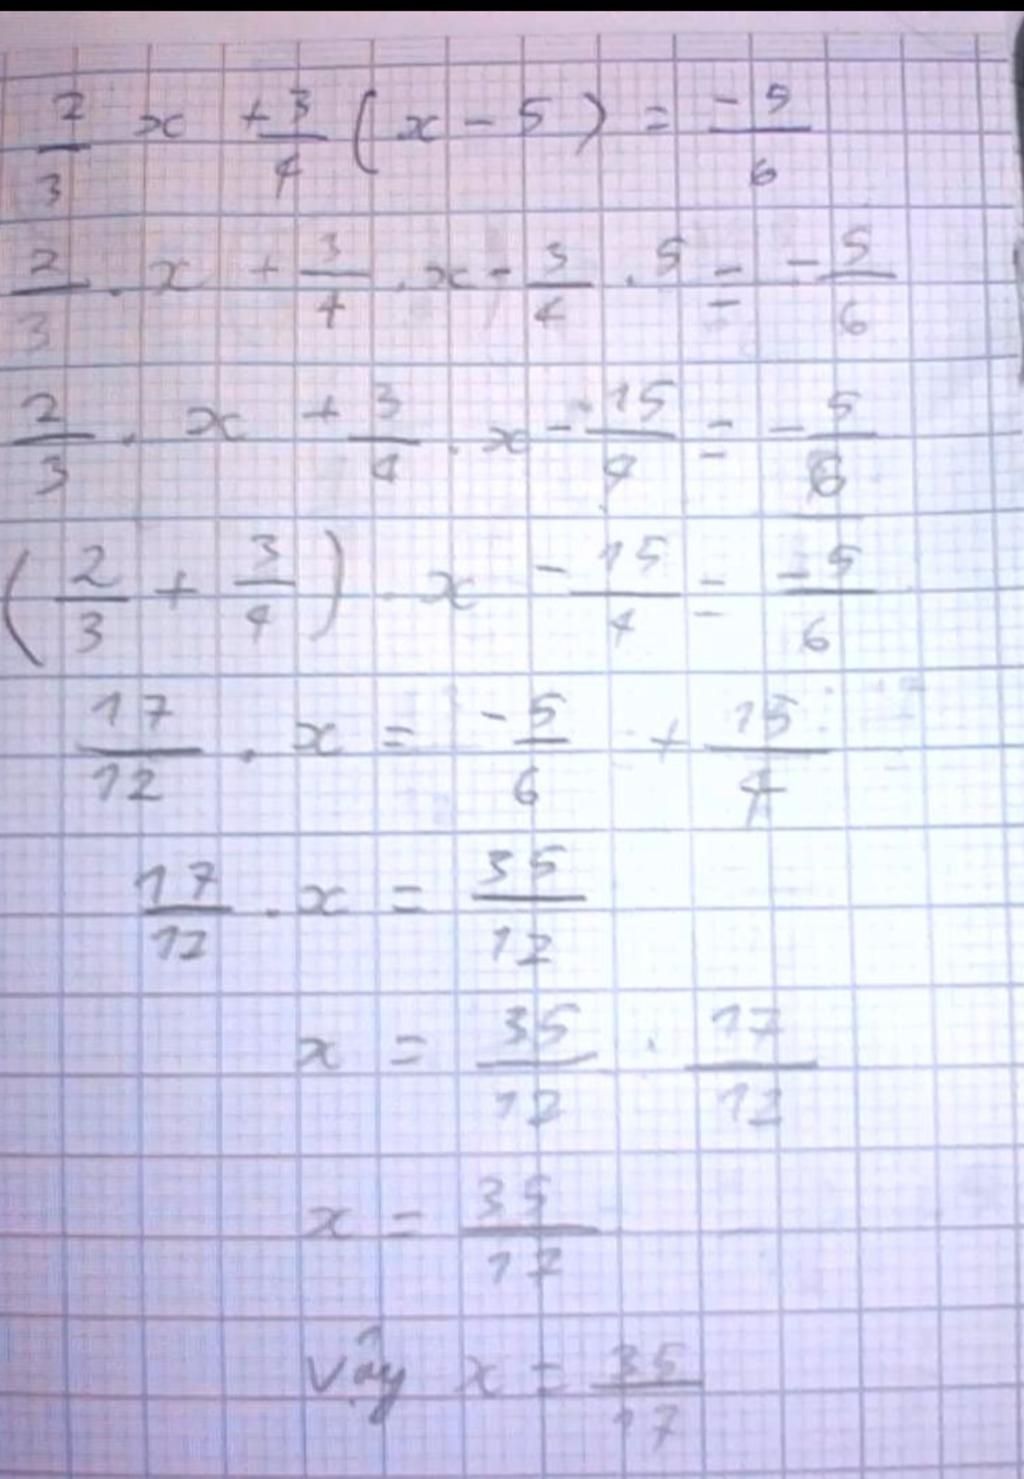 2/3 x + 3/4 (x - 5) = -5/6
2/3 . x + 3/4 . x - 3/4 . 5 = -5/6
2/3 . x + 3/4 . x - 15/4 = -5/6
(2/3 + 3/4) . x - 15/4 = -5/6
17/12 . x = -5/6 + 15/4
17/12 . x = 35/12
x = 35/12 . 17/12
x = 35/17
Vậy x = 35/17